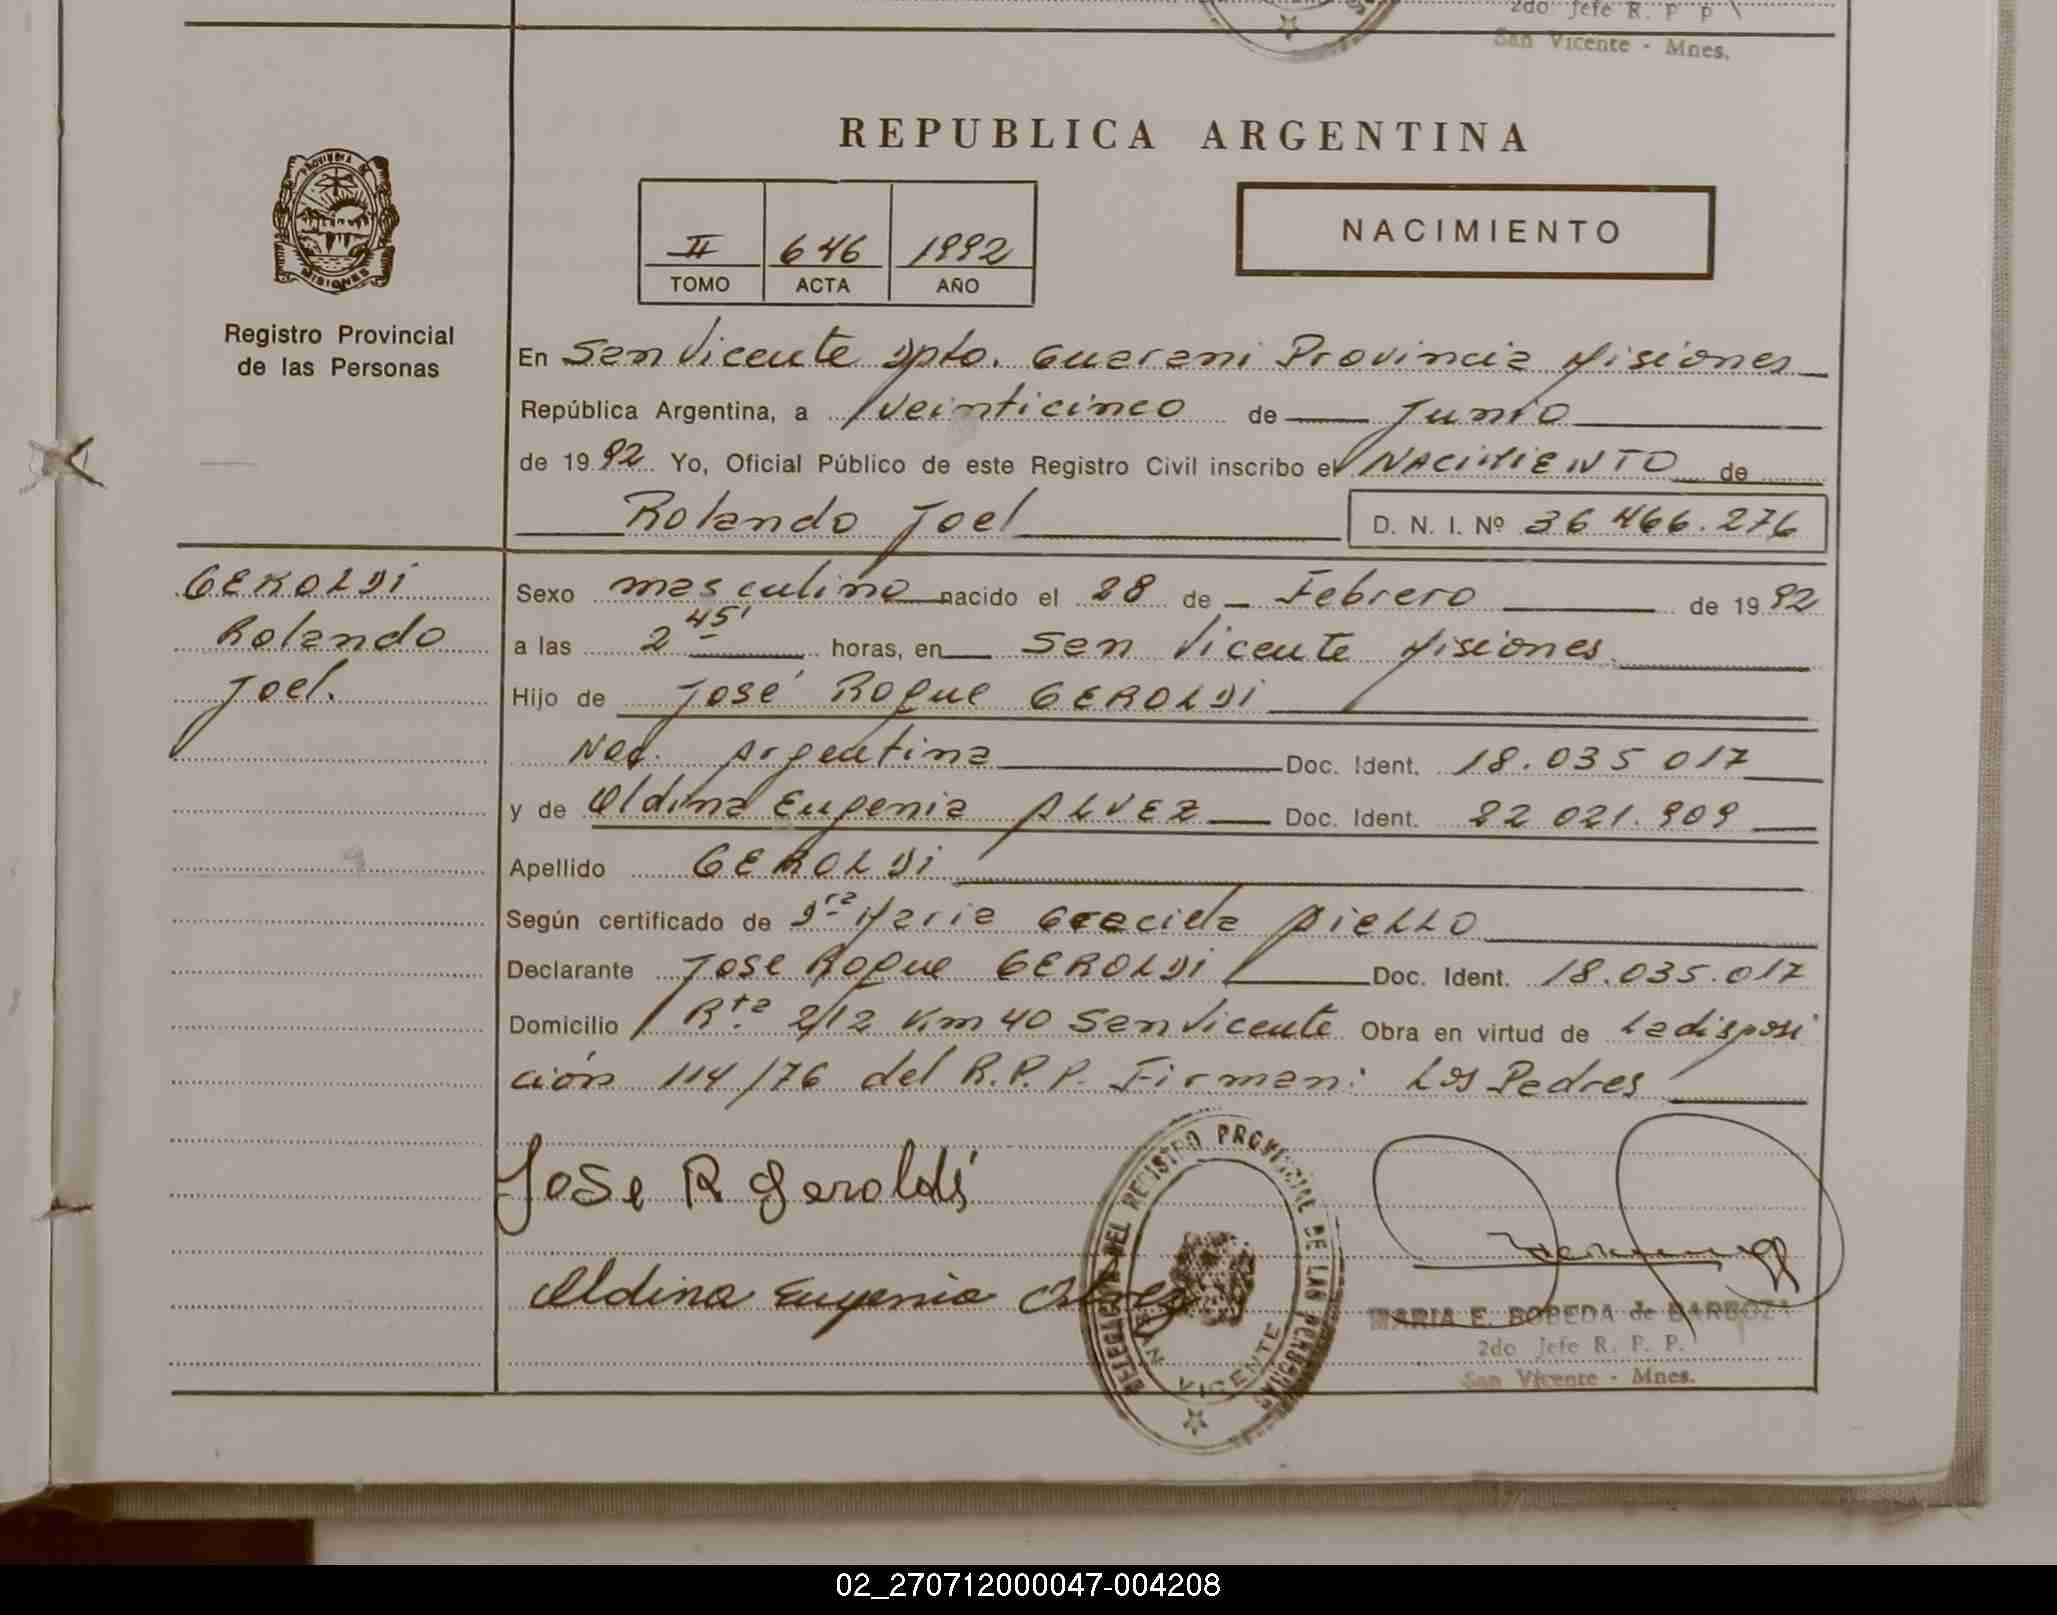 2do Jefe R. P P
San Vicente - Mnes.
REPUBLICA ARGENTINA
PROVINCIA DE
MISIONES
NACIMIENTO
II 646 1992
TOMO ACTA AÑO
Registro Provincial
de las Personas
En San Vicente Dpto. Guarani Provincia Misiones
República Argentina, a veinticinco de Junio
de 1992 Yo, Oficial Público de este Registro Civil inscribo el NACIMIENTO de
Rolando Joel D. N. I. Nº 36 466.276
GEROLDI
Rolando
Joel.
Sexo masculino nacido el 28 de Febrero de 1992
a las 2 45' horas, en San Vicente Misiones.
Hijo de José Roque GEROLDI
Nac. Argentina Doc. Ident. 18.035 017
y de Aldina Eugenia ALVEZ Doc. Ident. 22 021.909
Apellido GEROLDI
Según certificado de Dra Maria Gracida AIELLO
Declarante Jose Roque GEROLDI Doc. Ident. 18.035.017
Domicilio Rta 212 Km 40 San Vicente Obra en virtud de La disposi
ción 114/76 del R.P.P. Firman: Los Padres
Jose R Geroldi
Aldina Eugenia Alvez
DELEGACION DEL REGISTRO PROVINCIAL DE LAS PERSONAS
SAN VICENTE
MARIA E. BOBEDA de BARBOZA
2do Jefe R. P. P.
San Vicente - Mnes.
02_270712000047-004208